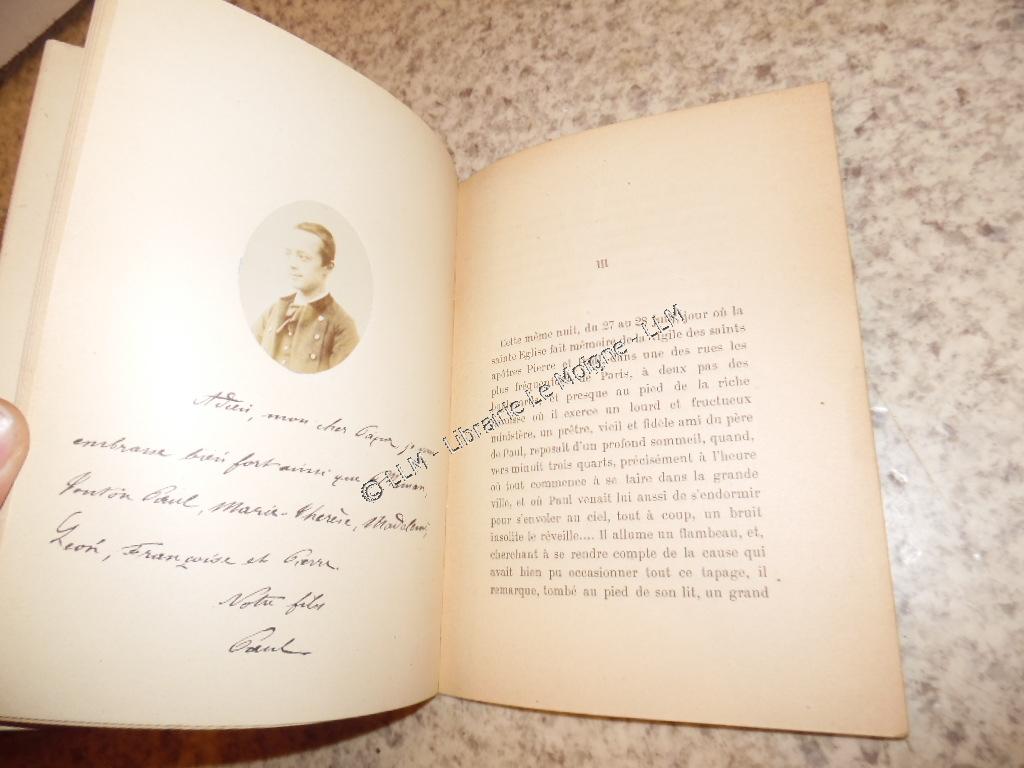 Adieu, mon cher Papa, je vous
embrasse bien fort ainsi que Maman,
Tonton Paul, Marie-Thérèse, Madeleine,
Léon, Françoise et Pierre.
Votre fils
Paul
III
Cette même nuit, du 27 au 28 juin, jour où la
sainte Eglise fait mémoire de la Vigile des saints
apôtres Pierre et Paul, dans une des rues les
plus fréquentées de Paris, à deux pas des
et presque au pied de la riche
où il exerce un lourd et fructueux
ministère, un prêtre, vieil et fidèle ami du père
de Paul, reposait d'un profond sommeil, quand,
vers minuit trois quarts, précisément à l'heure
où tout commence à se taire dans la grande
ville, et où Paul venait lui aussi de s'endormir
pour s'envoler au ciel, tout à coup, un bruit
insolite le réveille.... Il allume un flambeau, et,
cherchant à se rendre compte de la cause qui
avait bien pu occasionner tout ce tapage, il
remarque, tombé au pied de son lit, un grand
© LLM - Librairie Le Moigne - LLM